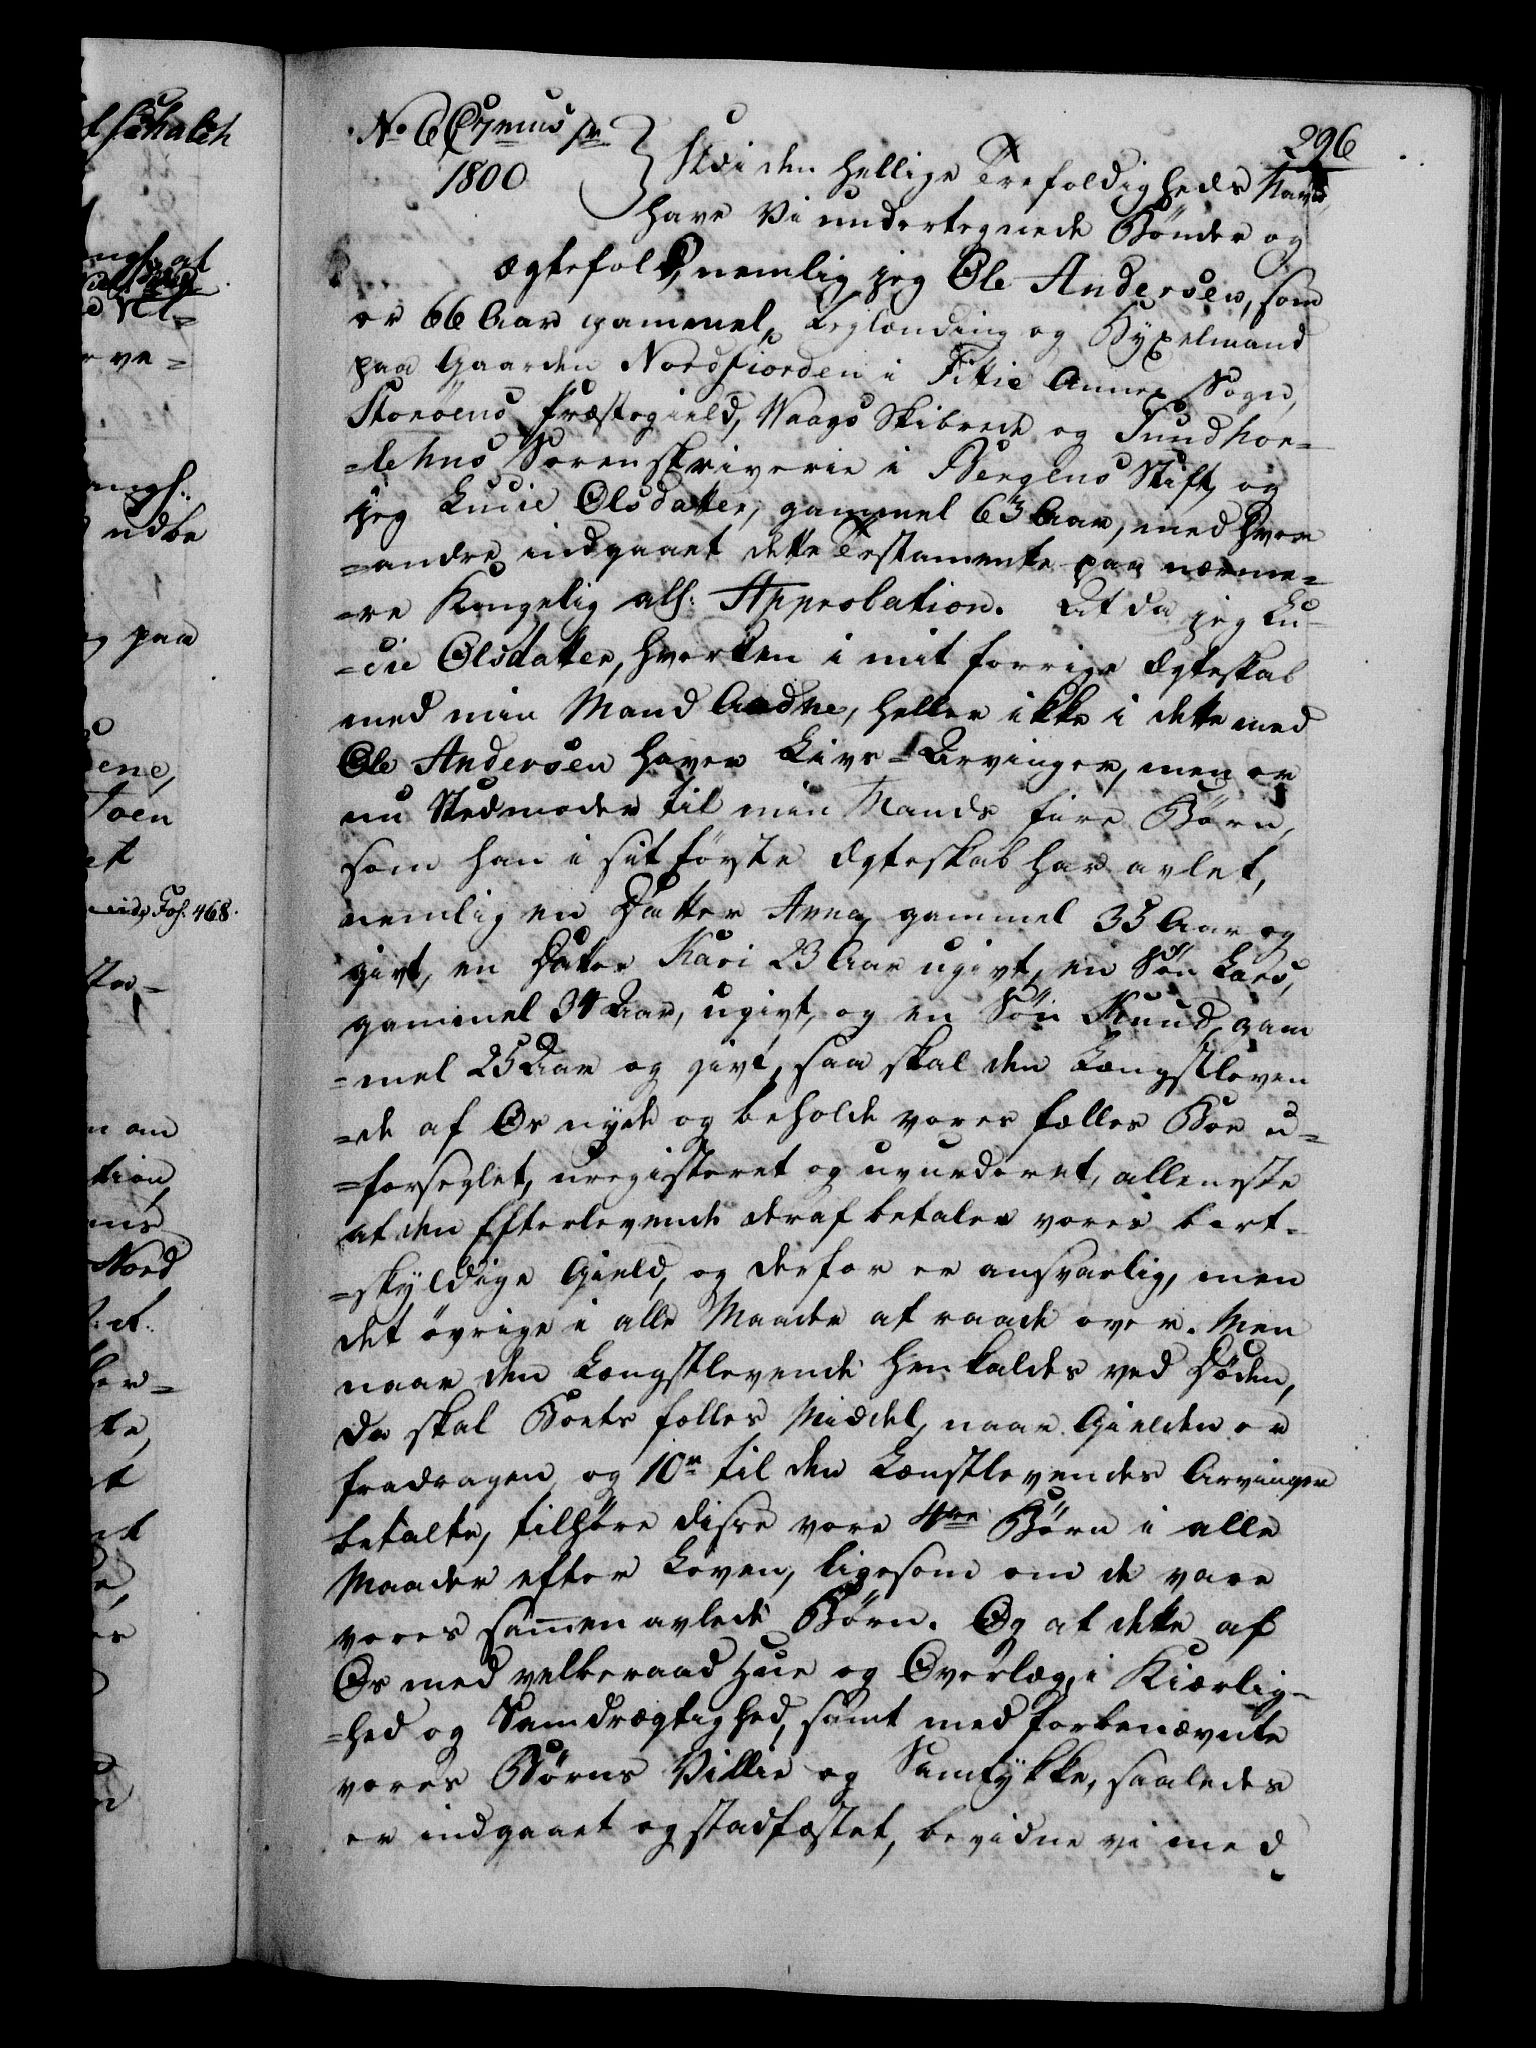 296
No 6 C
1800
I den hellige Trefoldigheds Navn
have Vi undertegnede Bönder og
ægtefolk, nemlig jeg Ole Andersen, som
er 66 Aar gammel, Leglænding og Byxelmand
paa Gaarden Nordfiorden i Fitie Annex Sogn,
Storöens Præstegield, Waags Skibrede og Sundhor-
=lehns Sorenskriverie i Bergens Stift, og
jeg Lucie Olsdatter, gammel 63 Aar, med hver
=andre indgaaet dette Testamente paa nærme-
=re Kongelig all: Approbation. At da jeg Lu-
=cie Olsdatter, hverken i mit forrige Ægteskab
med min Mand Aadne, heller ikke i dette med
Ole Andersen haver Livs=Arvinger, men er
nu Stedmoder til min Mands fiire Börn,
som han i sit förste Ægteskab har avlet,
nemlig en Datter Anna, gammel 35 Aar og
givt, en Datter Kari 23 Aar ugivt, en Sön Lars,
gammel 34 Aar, ugivt, og en Sön Knud, gam
=mel 25 Aar og givt, saa skal den Længstleven
=de af Os nyde og beholde vores fælles Boe u-
=forseglet, uregisteret og uvurderet, alleneste
at den Efterlevende deraf betaler vores bort-
=skyldige Gield, og derfor er ansvarlig, men
det övrige i alle Maader at raade over. Men
naar den Længstlevende henkaldes ved Döden,
da skal Boets fælles Middel, naar Gielden er
fradragen og 10 r til den Længstlevendes Arvinger
betalte, tilhöre disse vore 4re Börn i alle
Maader efter Loven, ligesom om de vare
vores samen avlede Börn. Og at dette af
Os med velberaad Hue og Overlæg, i Kiærlig-
=hed og Samdrægtighed, samt med forbenævnte
vores Börns Villie og Samtykke, saaledes
er indgaaet og stadfæstet, bevidne vi med
t Schalch
ve=
udbe
paa
Joen
Fol. 468.
tion
Nord